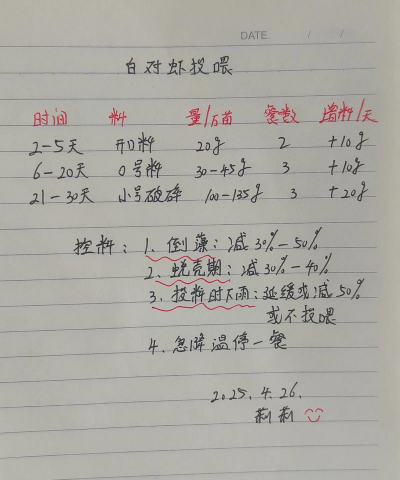 DATE. / /
白对虾投喂
时间 料 量/万苗 餐数 增料/天
2-5天 开口料 20g 2 +10g
6-20天 0号料 30-45g 3 +10g
21-30天 小号破碎 100-135g 3 +20g
控料: 1、倒藻: 减30%-50%
2、蜕壳期: 减30%-40%
3、投料时下雨: 延缓或减50%
或不投喂
4、急降温停一餐
2025.4.26.
莉莉